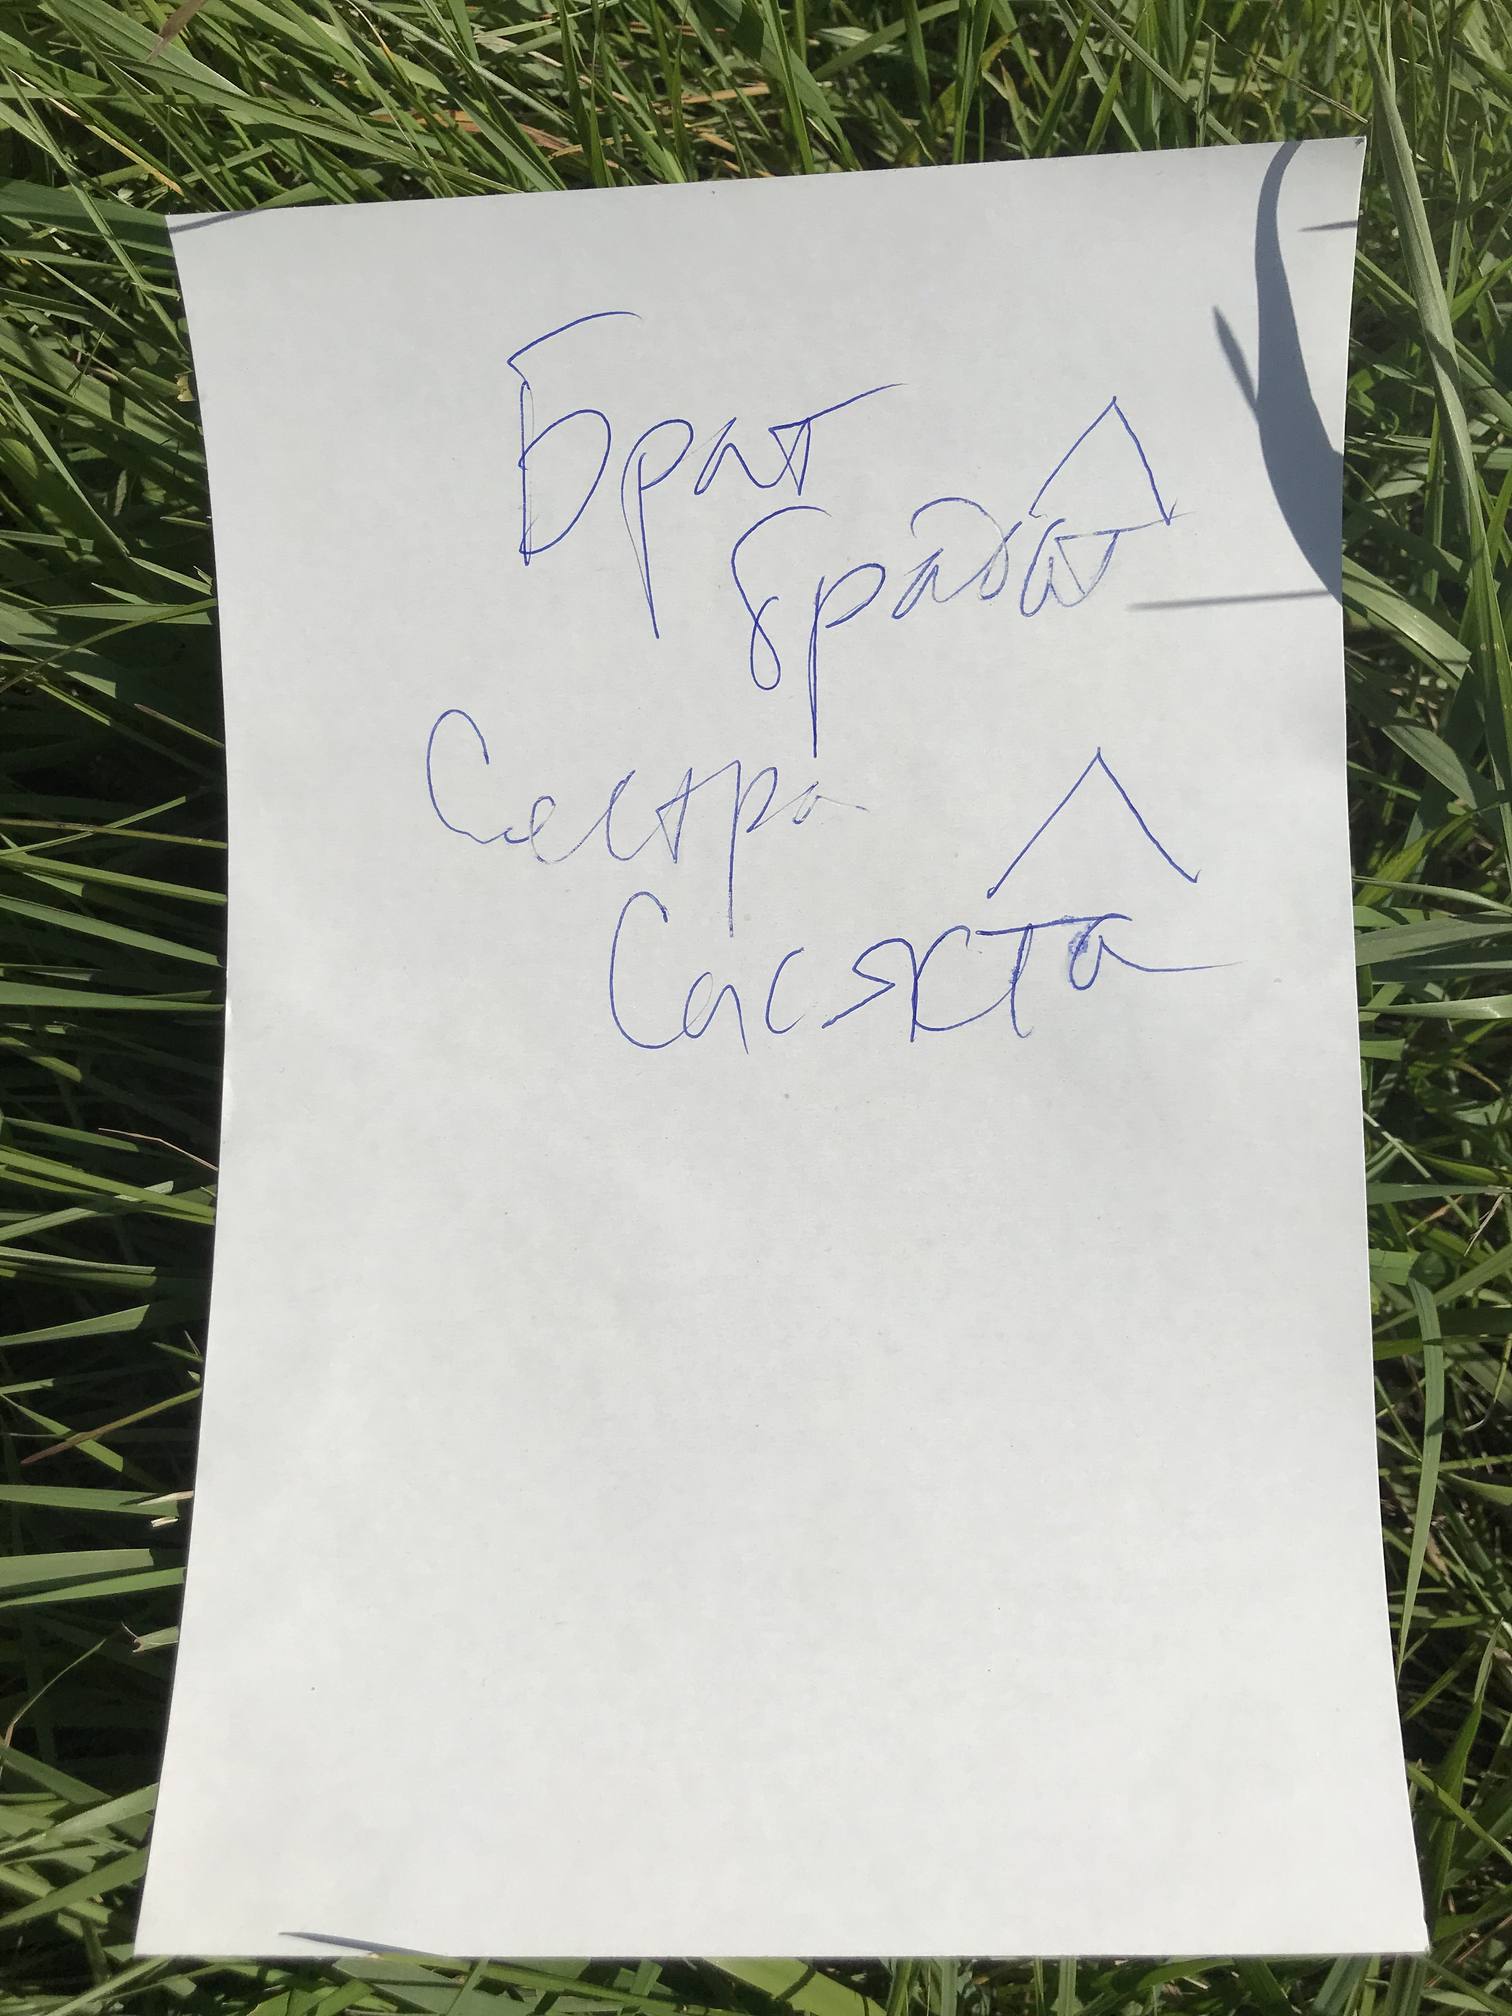 Брат
брабат
Сестра
Сасякста